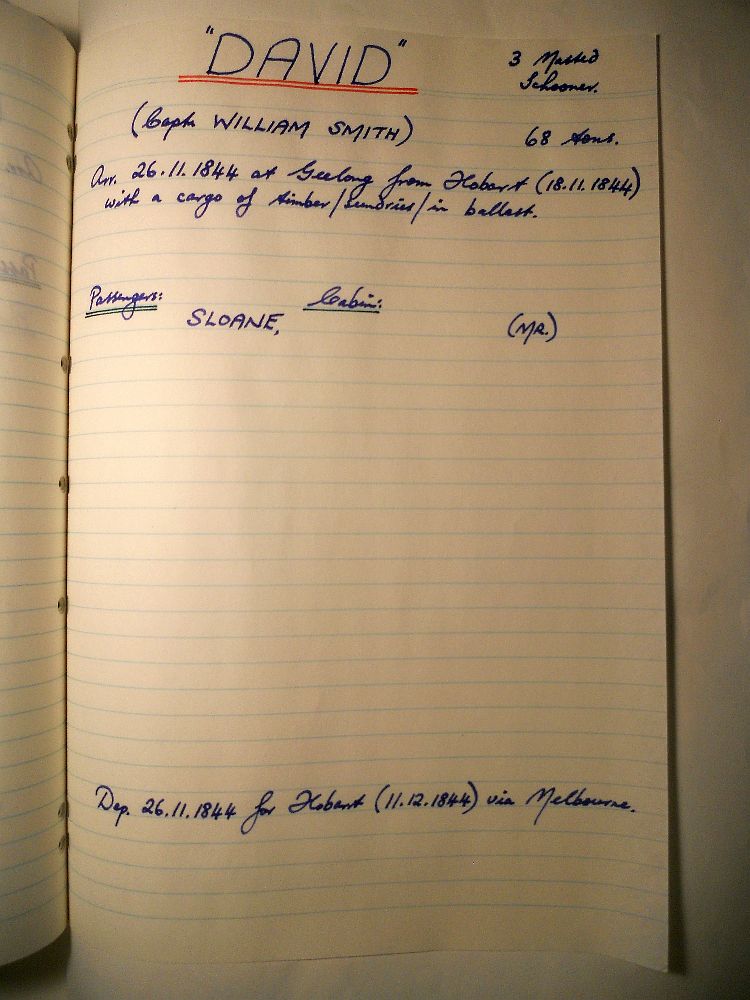 "DAVID"
3 Masted
Schooner.
(Capt. WILLIAM SMITH)
68 tons.
Arr. 26.11.1844 at Geelong from Hobart (18.11.1844)
with a cargo of timber/sundries/in ballast.
Passengers:
Cabin:
SLOANE, (MR.)
Dep. 26.11.1844 for Hobart (11.12.1844) via Melbourne.